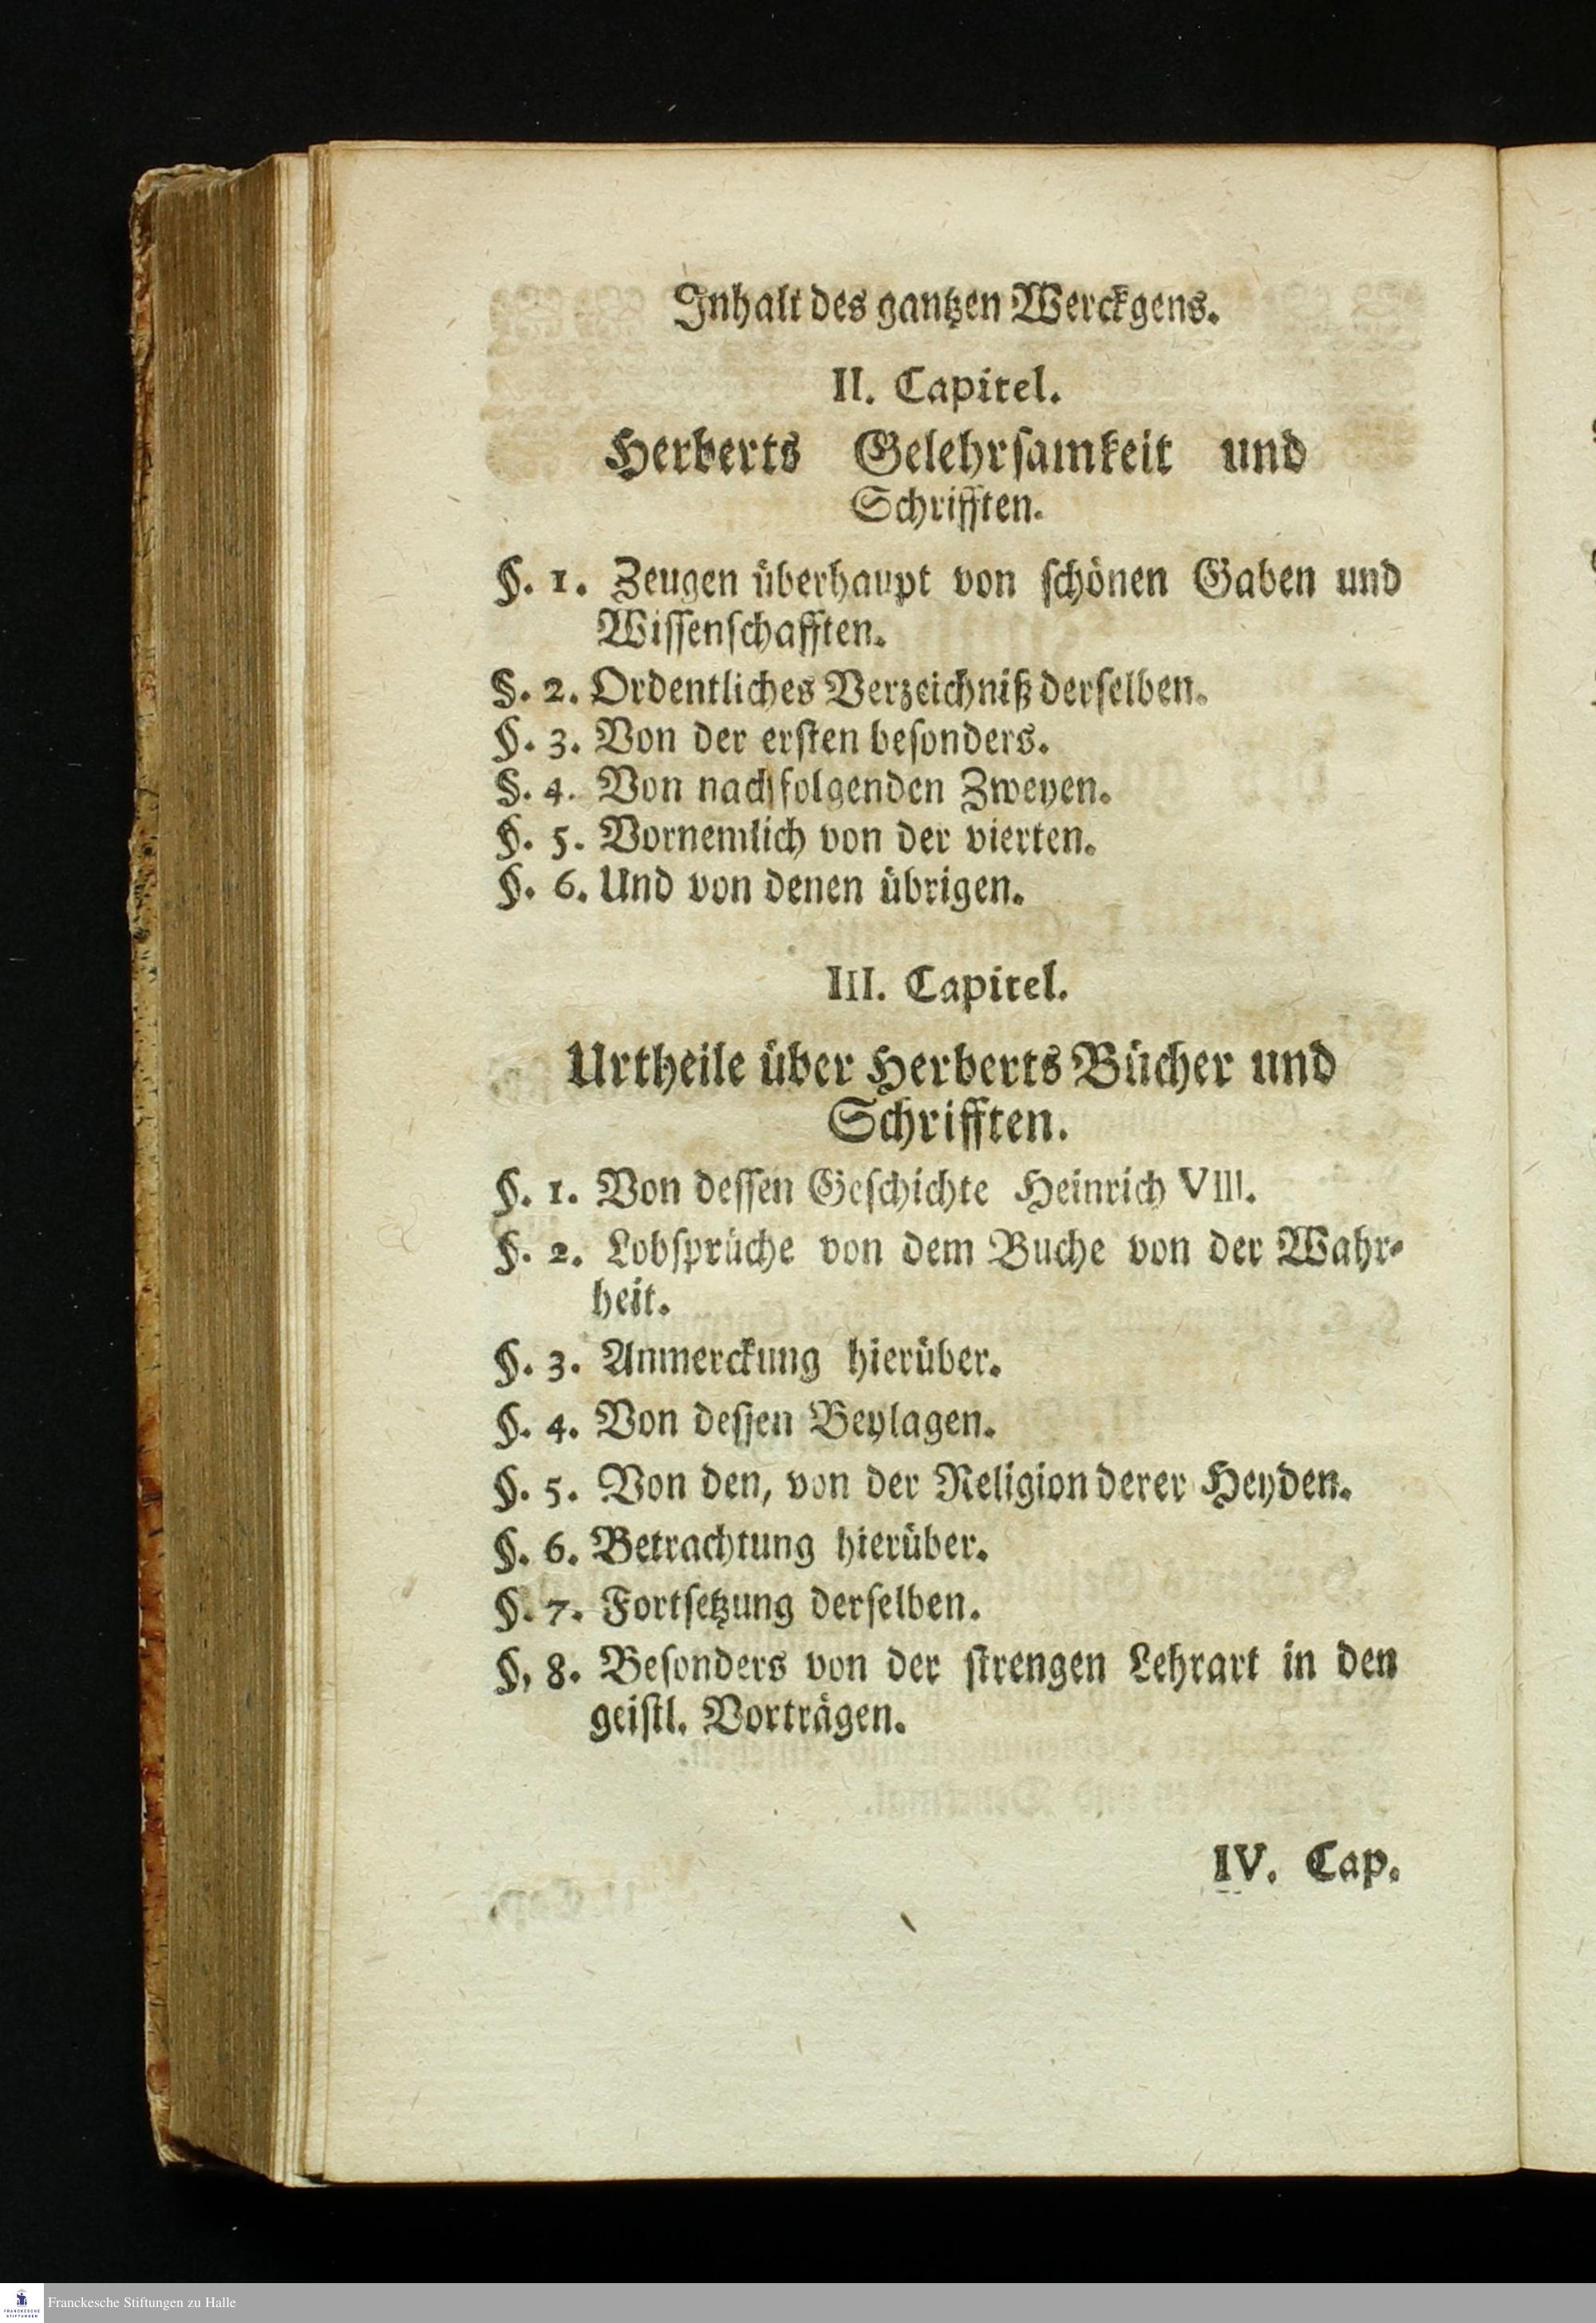 Inhalt des gantzen Werckgens.
II. Capitel.
Herberts Gelehrſamkeit und
Schrifften.
§. 1. Zeugen überhaupt von ſchönen Gaben und
Wiſſenſchafften.
§. 2. Ordentliches Verzeichniß derſelben.
§. 3. Von der erſten beſonders.
§. 4. Von nachfolgenden Zweyen.
§. 5. Vornemlich von der vierten.
§. 6. Und von denen übrigen.
III. Capitel.
Urtheile über Herberts Bücher und
Schrifften.
§. 1. Von deſſen Geſchichte Heinrich VIII.
§. 2. Lobſprüche von dem Buche von der Wahr-
heit.
§. 3. Anmerckung hierüber.
§. 4. Von deſſen Beylagen.
§. 5. Von den, von der Religion derer Heyden.
§. 6. Betrachtung hierüber.
§. 7. Fortſetzung derſelben.
§, 8. Beſonders von der ſtrengen Lehrart in den
geiſtl. Vorträgen.
IV. Cap.
FRANCKESCHE
STIFTUNGEN
Franckesche Stiftungen zu Halle